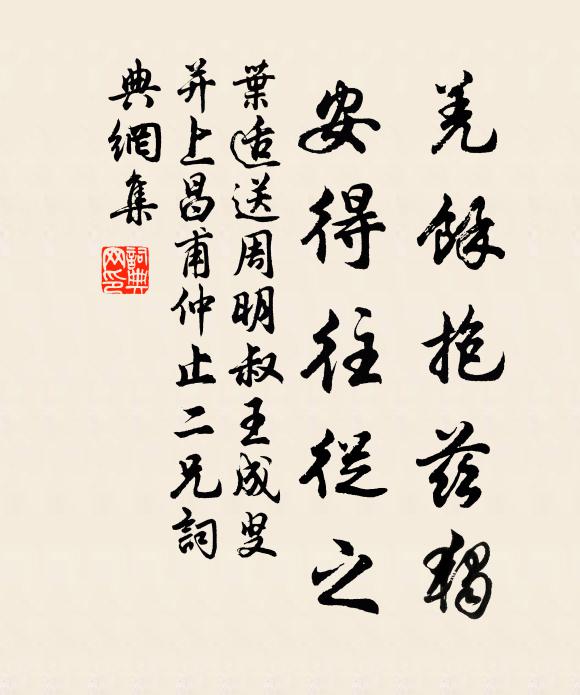 羌餘抱茲獨
安得往從之
葉适送周明叔王成叟
并上昌甫仲止二兄詞
典網集
詞典網印